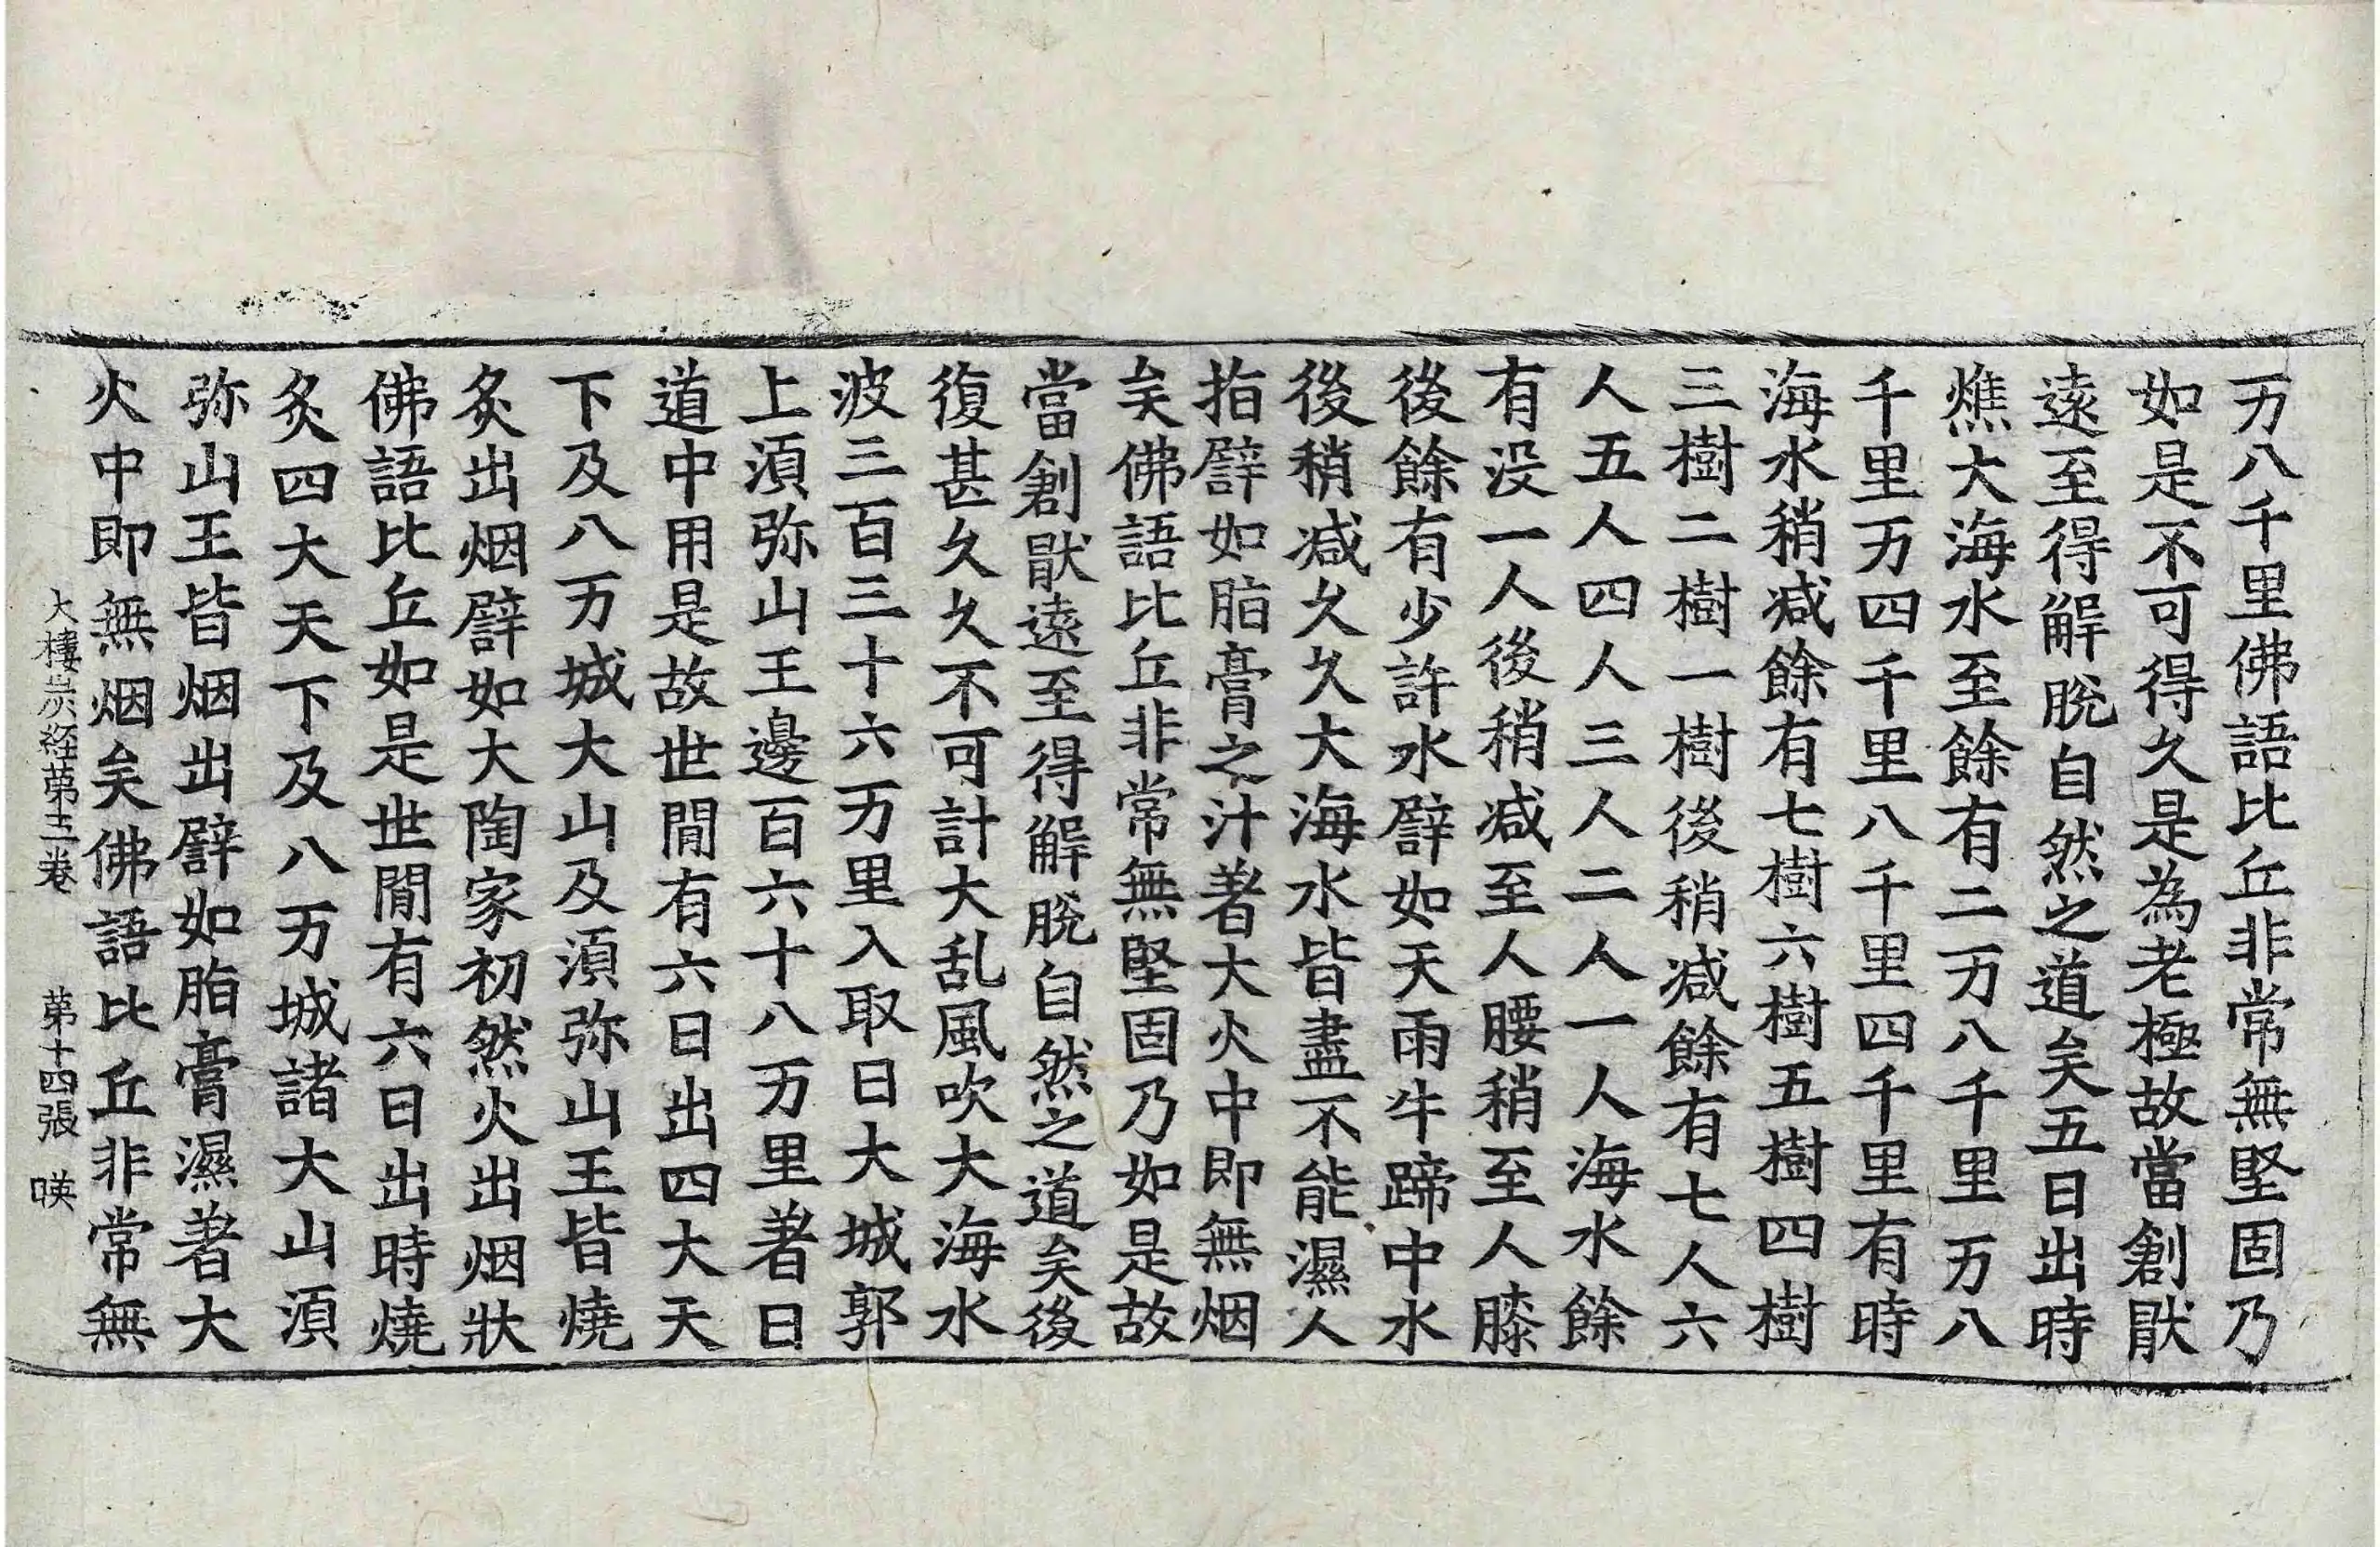 万八千里佛語比丘非常無堅固乃
如是不可得久是為老極故當創猒
遠至得解脫自然之道矣五日出時
燋大海水至餘有二万八千里万八
千里万四千里八千里四千里有時
海水稍减餘有七樹六樹五樹四樹
三樹二樹一樹後稍减餘有七人六
人五人四人三人二人一人海水餘
有没一人後稍减至人腰稍至人膝
後餘有少許水譬如天雨牛蹄中水
後稍减久久大海水皆盡不能濕人
指譬如脂膏之汁著大火中即無烟
矣佛語比丘非常無堅固乃如是故
當創猒遠至得解脫自然之道矣後
復甚久久不可計大乱風吹大海水
波三百三十六万里入取日大城郭
上湏弥山王邊百六十八万里著日
道中用是故世閒有六日出四大天
下及八万城大山及湏弥山王皆燒
炙出烟譬如大陶家初然火出烟狀
佛語比丘如是世閒有六日出時燒
炙四大天下及八万城諸大山湏
弥山王皆烟出譬如脂膏濕著大
火中即無烟矣佛語比丘非常無
大樓炭経苐三卷 苐十四張 暎